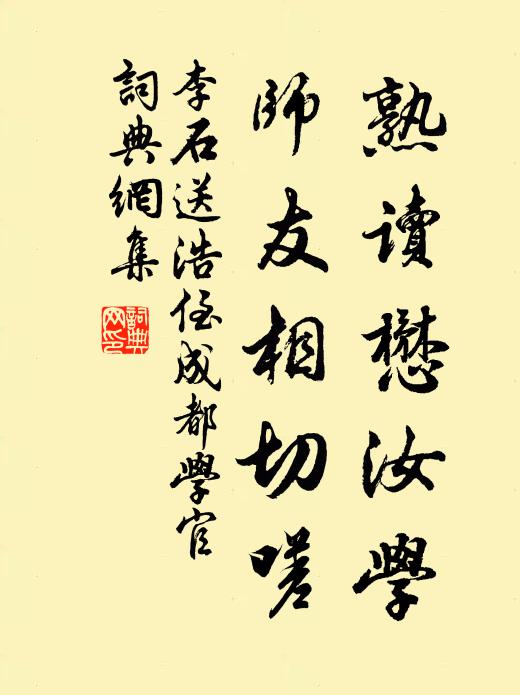 熟讀懋汝學
師友相切嗟
李石送浩侄成都學官
詞典網集
詞典網印